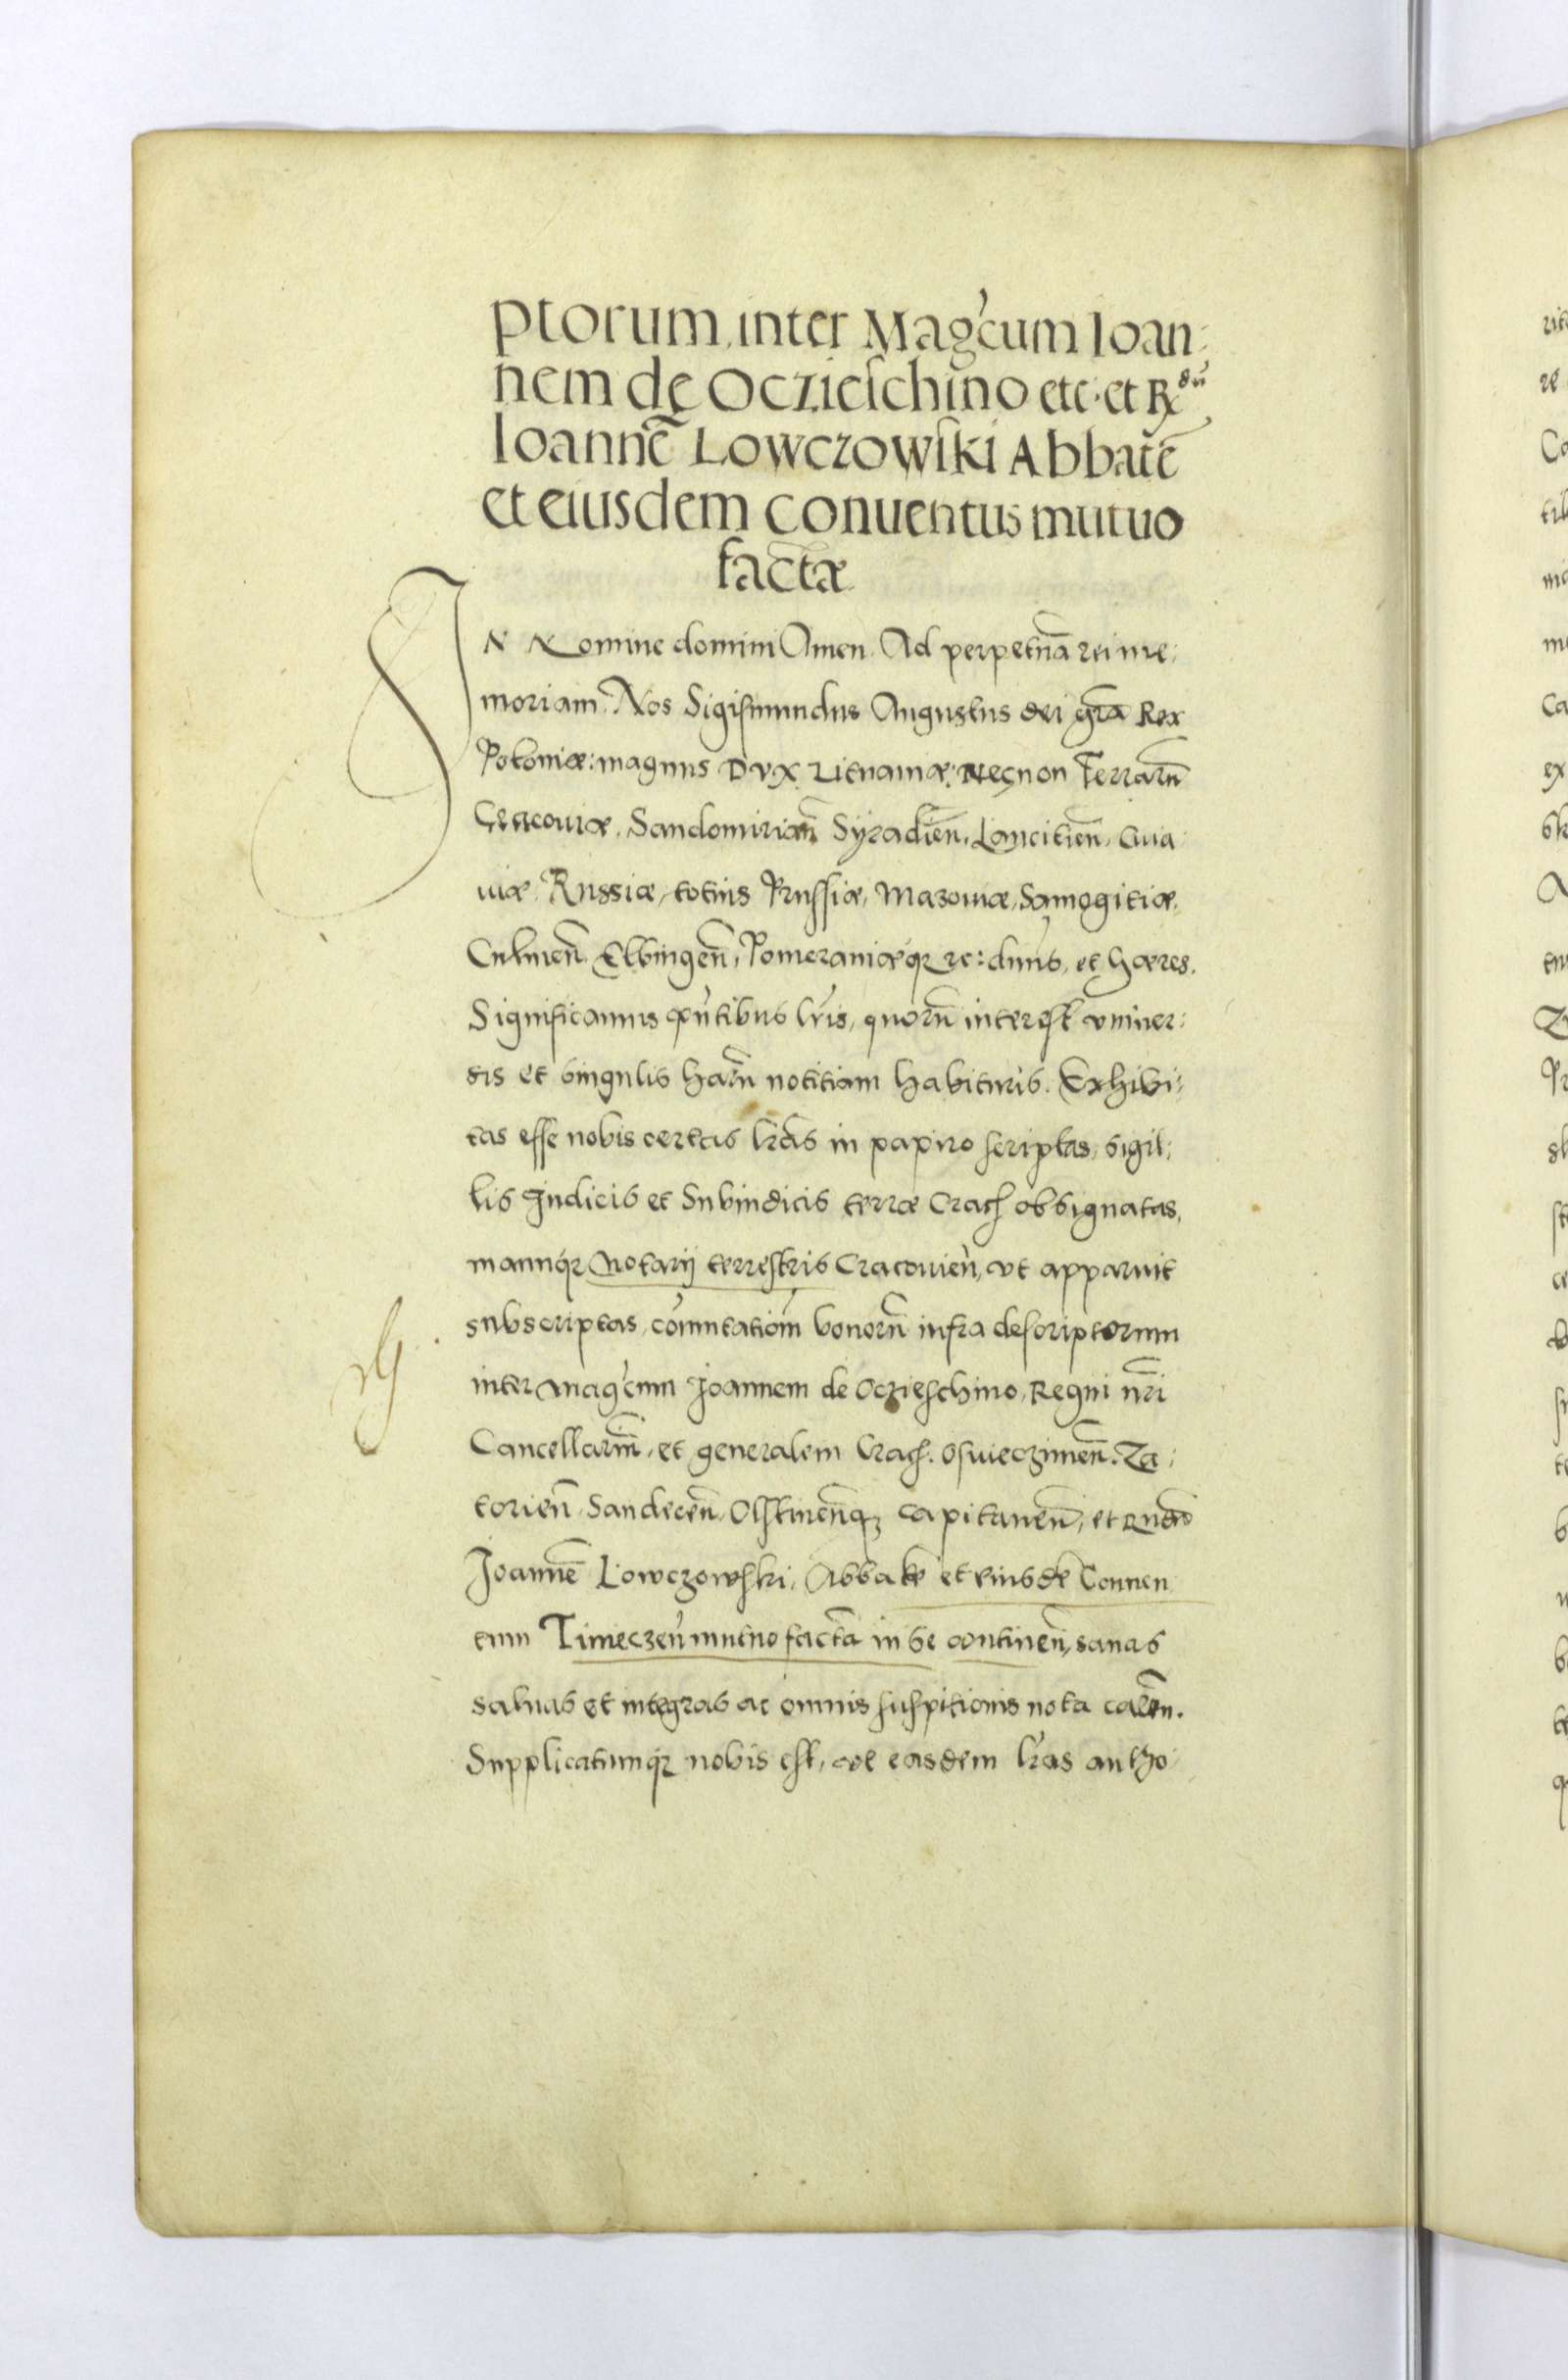 ptorum, inter Mag̃cum Ioan:
nem de Oczieschino etc. et R.dũ
Ioannẽ Lowczowski Abbatẽ
et eiusdem Conuentus mutuo
factæ
IN Nomine domini Amen. Ad perpetuã rei me:
moriam. Nos Sigismundus Augustus dei grã Rex
Poloniæ: magnus Dvx Lituaniæ: Necnon Terrarũ
Cracouiæ, Sandomiriañ Syradieñ, Lancitieñ, Cuia
uiæ, Russiæ, totius Prussiæ, Mazouiæ, Samogitiæ,
Culmeñ Elbingeñ, Pomeraniæq́ꝫ ꝛc: dũns, et hæres.
Significamus pñtibus lr̃is, quorũ interest vniuer:
sis et singulis harũ notitiam habituris. Exhibi:
tas esse nobis certas lrãs in papiro scriptas, sigil:
lis Iudicis et Subiudicis terræ Crac̃ obsignatas,
manuq́ꝫ Notarij terrestris Cracouieñ, vt apparuit
subscriptas, com̃utatiom̃ bonorũ infra descriptorum
inter Mag̃cum Joannem de Oczieschino, Regni nr̃i
Cancellariũ, et generalem Crac̃. Osvieczimeñ. Za:
torieñ Sandeceñ, Olstineñqꝫ capitaneũ, et Rndũ
Joannẽ Lowczowski, Abbatẽ et eiusdẽ Conuen
tum Timeczeñ mutuo factã in se contineñ, sanas
saluas et integras ac omnis suspitionis nota careñ.
Supplicatumq́ꝫ nobis est, vt easdem lr̃as autho